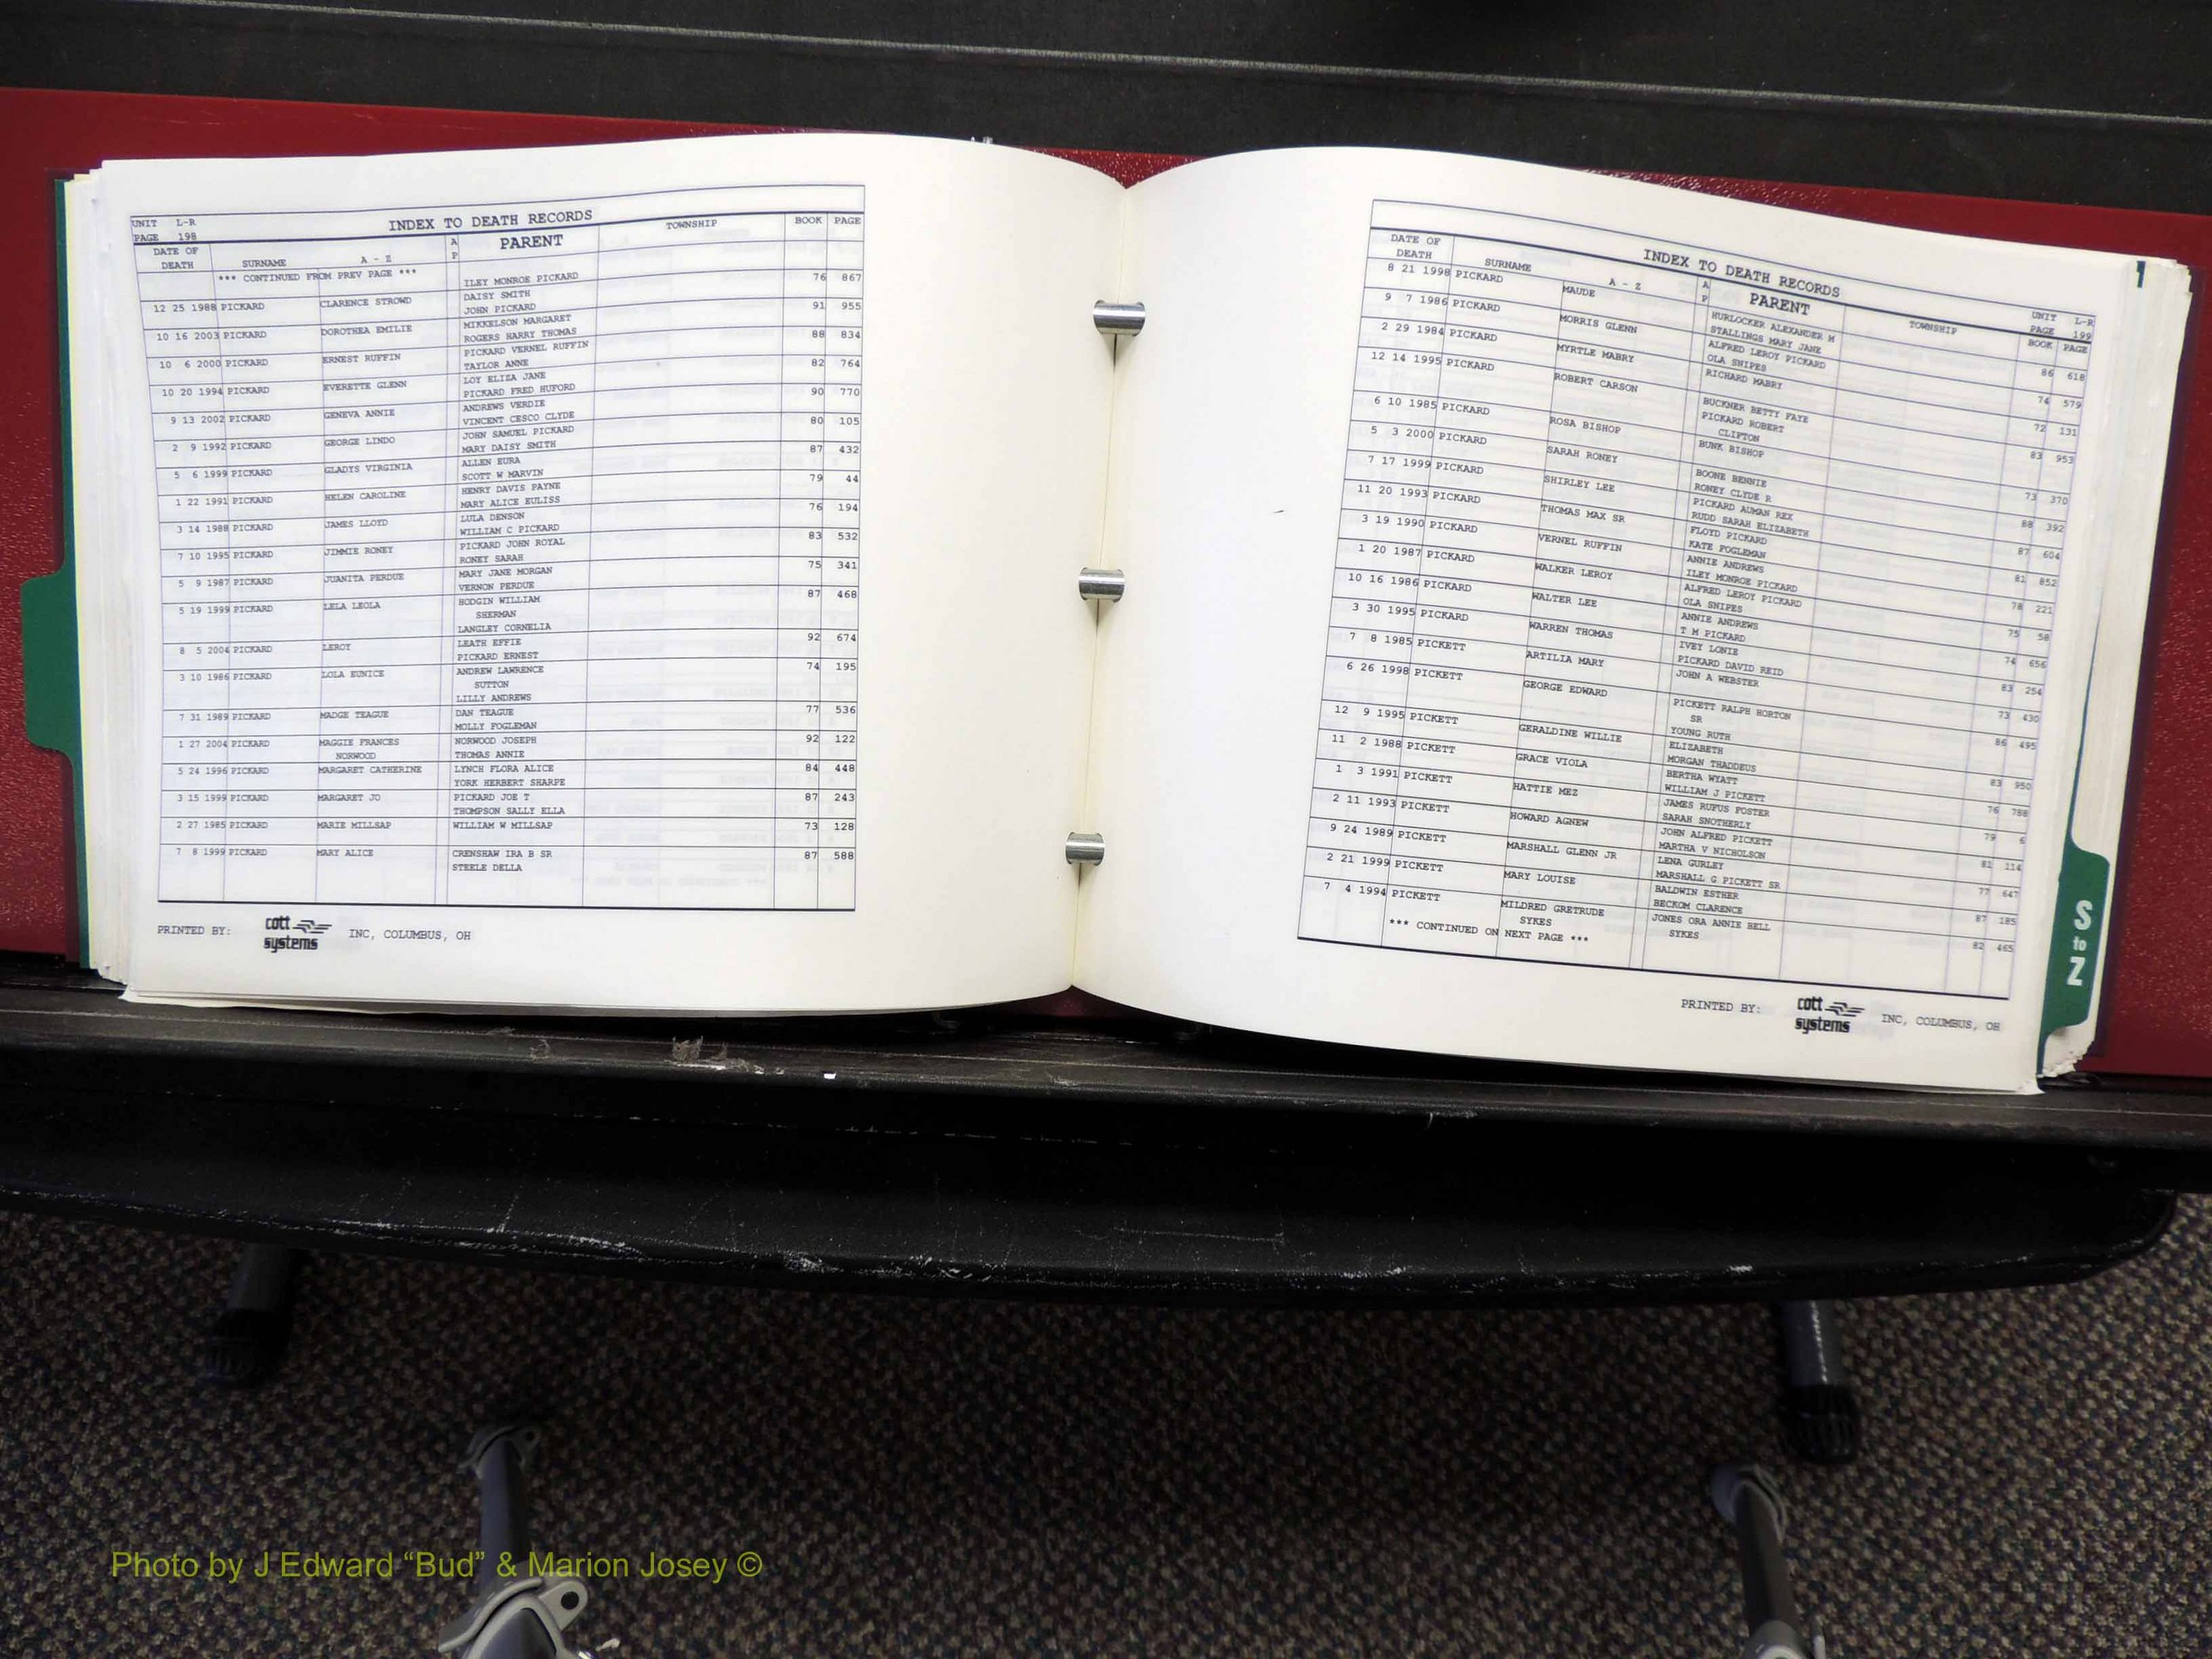 UNIT L-R
PAGE 198
INDEX TO DEATH RECORDS
DATE OF DEATH SURNAME A - Z A P PARENT TOWNSHIP BOOK PAGE
*** CONTINUED FROM PREV PAGE *** ILEY MONROE PICKARD 76 867
12 25 1988 PICKARD CLARENCE STROWD DAISY SMITH 91 955
JOHN PICKARD
10 16 2003 PICKARD DOROTHEA EMILIE MIKKELSON MARGARET 88 834
ROGERS HARRY THOMAS
10 6 2000 PICKARD ERNEST RUFFIN PICKARD VERNEL RUFFIN 82 764
TAYLOR ANNE
10 20 1994 PICKARD EVERETTE GLENN LOY ELIZA JANE 90 770
PICKARD FRED HUFORD
9 13 2002 PICKARD GENEVA ANNIE ANDREWS VERDIE 80 105
VINCENT CESCO CLYDE
2 9 1992 PICKARD GEORGE LINDO JOHN SAMUEL PICKARD 87 432
MARY DAISY SMITH
5 6 1999 PICKARD GLADYS VIRGINIA ALLEN EURA 79 44
SCOTT W MARVIN
1 22 1991 PICKARD HELEN CAROLINE HENRY DAVIS PAYNE 76 194
MARY ALICE EULISS
3 14 1988 PICKARD JAMES LLOYD LULA DENSON 83 532
WILLIAM C PICKARD
7 10 1995 PICKARD JIMMIE RONEY PICKARD JOHN ROYAL 75 341
RONEY SARAH
5 9 1987 PICKARD JUANITA PERDUE MARY JANE MORGAN 87 468
VERNON PERDUE
5 19 1999 PICKARD LELA LEOLA HODGIN WILLIAM
SHERMAN
LANGLEY CORNELIA 92 674
8 5 2004 PICKARD LEROY LEATH EFFIE
PICKARD ERNEST 74 195
3 10 1986 PICKARD LOLA EUNICE ANDREW LAWRENCE
SUTTON
LILLY ANDREWS
7 31 1989 PICKARD MADGE TEAGUE DAN TEAGUE 77 536
MOLLY FOGLEMAN
1 27 2004 PICKARD MAGGIE FRANCES NORWOOD JOSEPH 92 122
NORWOOD THOMAS ANNIE
5 24 1996 PICKARD MARGARET CATHERINE LYNCH FLORA ALICE 84 448
YORK HERBERT SHARPE
3 15 1999 PICKARD MARGARET JO PICKARD JOE T 87 243
THOMPSON SALLY ELLA
2 27 1985 PICKARD MARIE MILLSAP WILLIAM W MILLSAP 73 128
7 8 1999 PICKARD MARY ALICE CRENSHAW IRA B SR 87 588
STEELE DELLA
PRINTED BY: cott systems INC, COLUMBUS, OH
INDEX TO DEATH RECORDS
UNIT L-R
PAGE 199
DATE OF DEATH SURNAME A - Z A P PARENT TOWNSHIP BOOK PAGE
8 21 1998 PICKARD MAUDE HURLOCKER ALEXANDER M 86 618
STALLINGS MARY JANE
9 7 1986 PICKARD MORRIS GLENN ALFRED LEROY PICKARD 74 579
OLA SNIPES
2 29 1984 PICKARD MYRTLE MABRY RICHARD MABRY 72 131
12 14 1995 PICKARD ROBERT CARSON BUCKNER BETTY FAYE 83 953
PICKARD ROBERT
CLIFTON
6 10 1985 PICKARD ROSA BISHOP BUNK BISHOP 73 370
5 3 2000 PICKARD SARAH RONEY BOONE BENNIE 88 392
RONEY CLYDE R
7 17 1999 PICKARD SHIRLEY LEE PICKARD AUMAN REX 87 604
RUDD SARAH ELIZABETH
11 20 1993 PICKARD THOMAS MAX SR FLOYD PICKARD 81 852
KATE FOGLEMAN
3 19 1990 PICKARD VERNEL RUFFIN ANNIE ANDREWS 78 221
ILEY MONROE PICKARD
1 20 1987 PICKARD WALKER LEROY ALFRED LEROY PICKARD 75 58
OLA SNIPES
10 16 1986 PICKARD WALTER LEE ANNIE ANDREWS 74 656
T M PICKARD
3 30 1995 PICKARD WARREN THOMAS IVEY LONIE 83 254
PICKARD DAVID REID
7 8 1985 PICKETT ARTILIA MARY JOHN A WEBSTER 73 430
6 26 1998 PICKETT GEORGE EDWARD PICKETT RALPH HORTON 86 495
SR
YOUNG RUTH
ELIZABETH
12 9 1995 PICKETT GERALDINE WILLIE MORGAN THADDEUS 83 950
11 2 1988 PICKETT GRACE VIOLA BERTHA WYATT 76 788
WILLIAM J PICKETT
1 3 1991 PICKETT HATTIE MEZ JAMES RUFUS FOSTER 79 6
SARAH SNOTHERLY
2 11 1993 PICKETT HOWARD AGNEW JOHN ALFRED PICKETT 81 114
MARTHA V NICHOLSON
9 24 1989 PICKETT MARSHALL GLENN JR LENA GURLEY 77 647
MARSHALL G PICKETT SR
2 21 1999 PICKETT MARY LOUISE BALDWIN ESTHER 87 185
BECKOM CLARENCE
7 4 1994 PICKETT MILDRED GRETRUDE JONES ORA ANNIE BELL 82 465
SYKES SYKES
*** CONTINUED ON NEXT PAGE ***
PRINTED BY: cott systems INC, COLUMBUS, OH
S
to
Z
Photo by J Edward “Bud” & Marion Josey ©